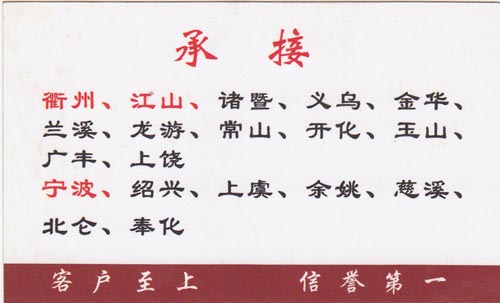 承 接
衢州、江山、诸暨、义乌、金华、
兰溪、龙游、常山、开化、玉山、
广丰、上饶
宁波、绍兴、上虞、余姚、慈溪、
北仑、奉化
客户至上 信誉第一